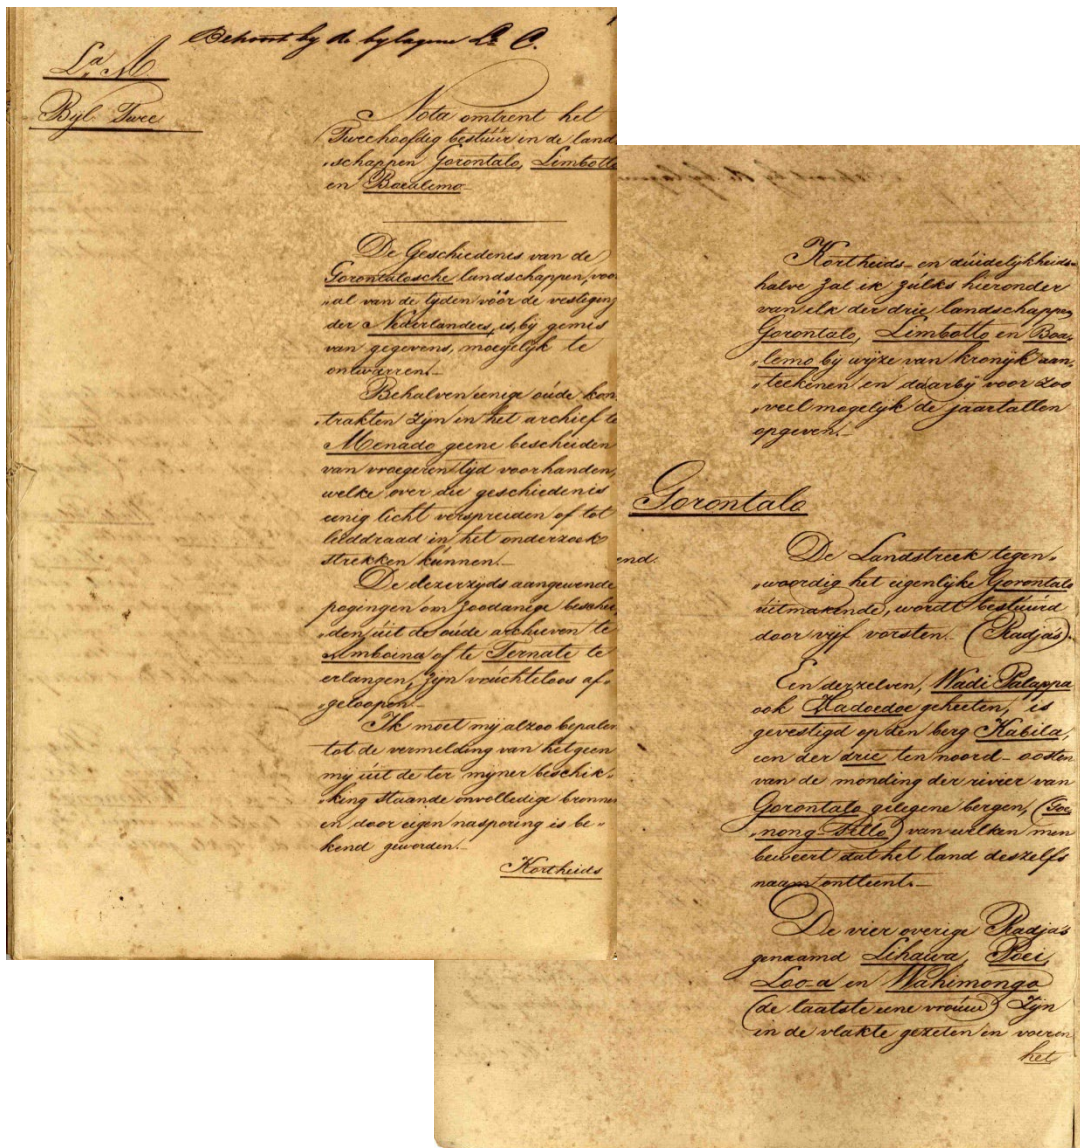 Behoort by de bylagene La C.
La M
Byl. Twee
Nota omtrent het
Tweehoofdig bestuur in de land
schappen Gorontalo, Limbotto
en Boealemo
De Geschiedenis van de
Gorontalosche landschappen, voor
al van de tyden vóór de vestiging
der Nederlanders, is, by gemis
van gegevens, moegelyk te
ontwarren.
Behalven eenige oude kon
trakten zyn in het archief te
Menado geene bescheiden
van vroegeren tyd voorhanden,
welke over die geschiedenis
eenig licht verspreiden of tot
leiddraad in het onderzoek
strekken kunnen.
De dezerzyds aangewende
pogingen om zoodanige beschei
den uit de oude archieven te
Amboina of te Ternate te
erlangen, zyn vruchteloos af
geloopen.
Ik moet my alzoo bepalen
tot de vermelding van hetgeen
my uit de ter myner beschik
king staande onvolledige bronnen
en door eigen nasporing is be
kend geworden.
Kortheids
end.
Kortheids- en duidelykheids
halve zal ik zulks hieronder
van elk der drie landschappen
Gorontalo, Limbotto en Boa
lemo by wyze van kronyk aan
teekenen en daarby voor zoo
veel mogelyk de jaartallen
opgeven.
Gorontalo
De Landstreek tegen
woordig het eigenlyke Gorontalo
uitmakende, wordt bestuurd
door vyf vorsten. (Radja's).
Een derzelven, Wadi Palappa
ook Hadoedoe geheeten, is
gevestigd op den berg Kabila,
een der drie ten noord-oosten
van de monding der rivier van
Gorontalo gelegene bergen, (Goe
nong-Tello) van welken men
beweert dat het land deszelfs
naam ontleent.
De vier overige Radja's
genaamd Lihawa, Poei,
Loo-a en Wahimongo
(de laatste eene vrouw) zyn
in de vlakte gezeten en voeren
het